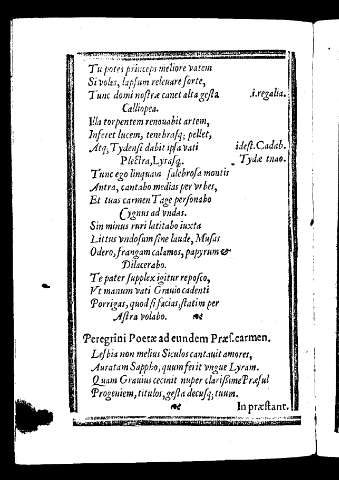 Tu potes princeps meliore vatem
Si voles, lapsum releuare sorte,
Tunc domi nostræ canet alta gesta .i.regalia.
Calliopea.
Illa torpentem renouabit artem,
Inferet lucem, tenebrasq; pellet,
Atq; Tydensi dabit ipsa vati idest.Cadab.
Plectra, Lyrasq. Tydæ tnao.
Tunc ego linquam salebrosa montis
Antra, cantabo medias per vrbes,
Et tuas carmen Tage personabo
Cygnus ad vndas.
Sin minus ruri latitabo iuxta
Littus vndosum sine laude, Musas
Odero, frangam calamos, papyrum &
Dilacerabo.
Te pater supplex igitur reposco,
Vt manum vati Grauio cadenti
Porrigas, quod si facias, statim per
Astra volabo.
Peregrini Poetæ ad eundem Præs. carmen.
Lesbia non melius Siculos cantauit amores,
Auratam Sappho, quum ferit vngue Lyram.
Quam Grauius cecinit nuper clarissime Præsul
Progeniem, titulos, gesta decusq; tuum.
In præstant.